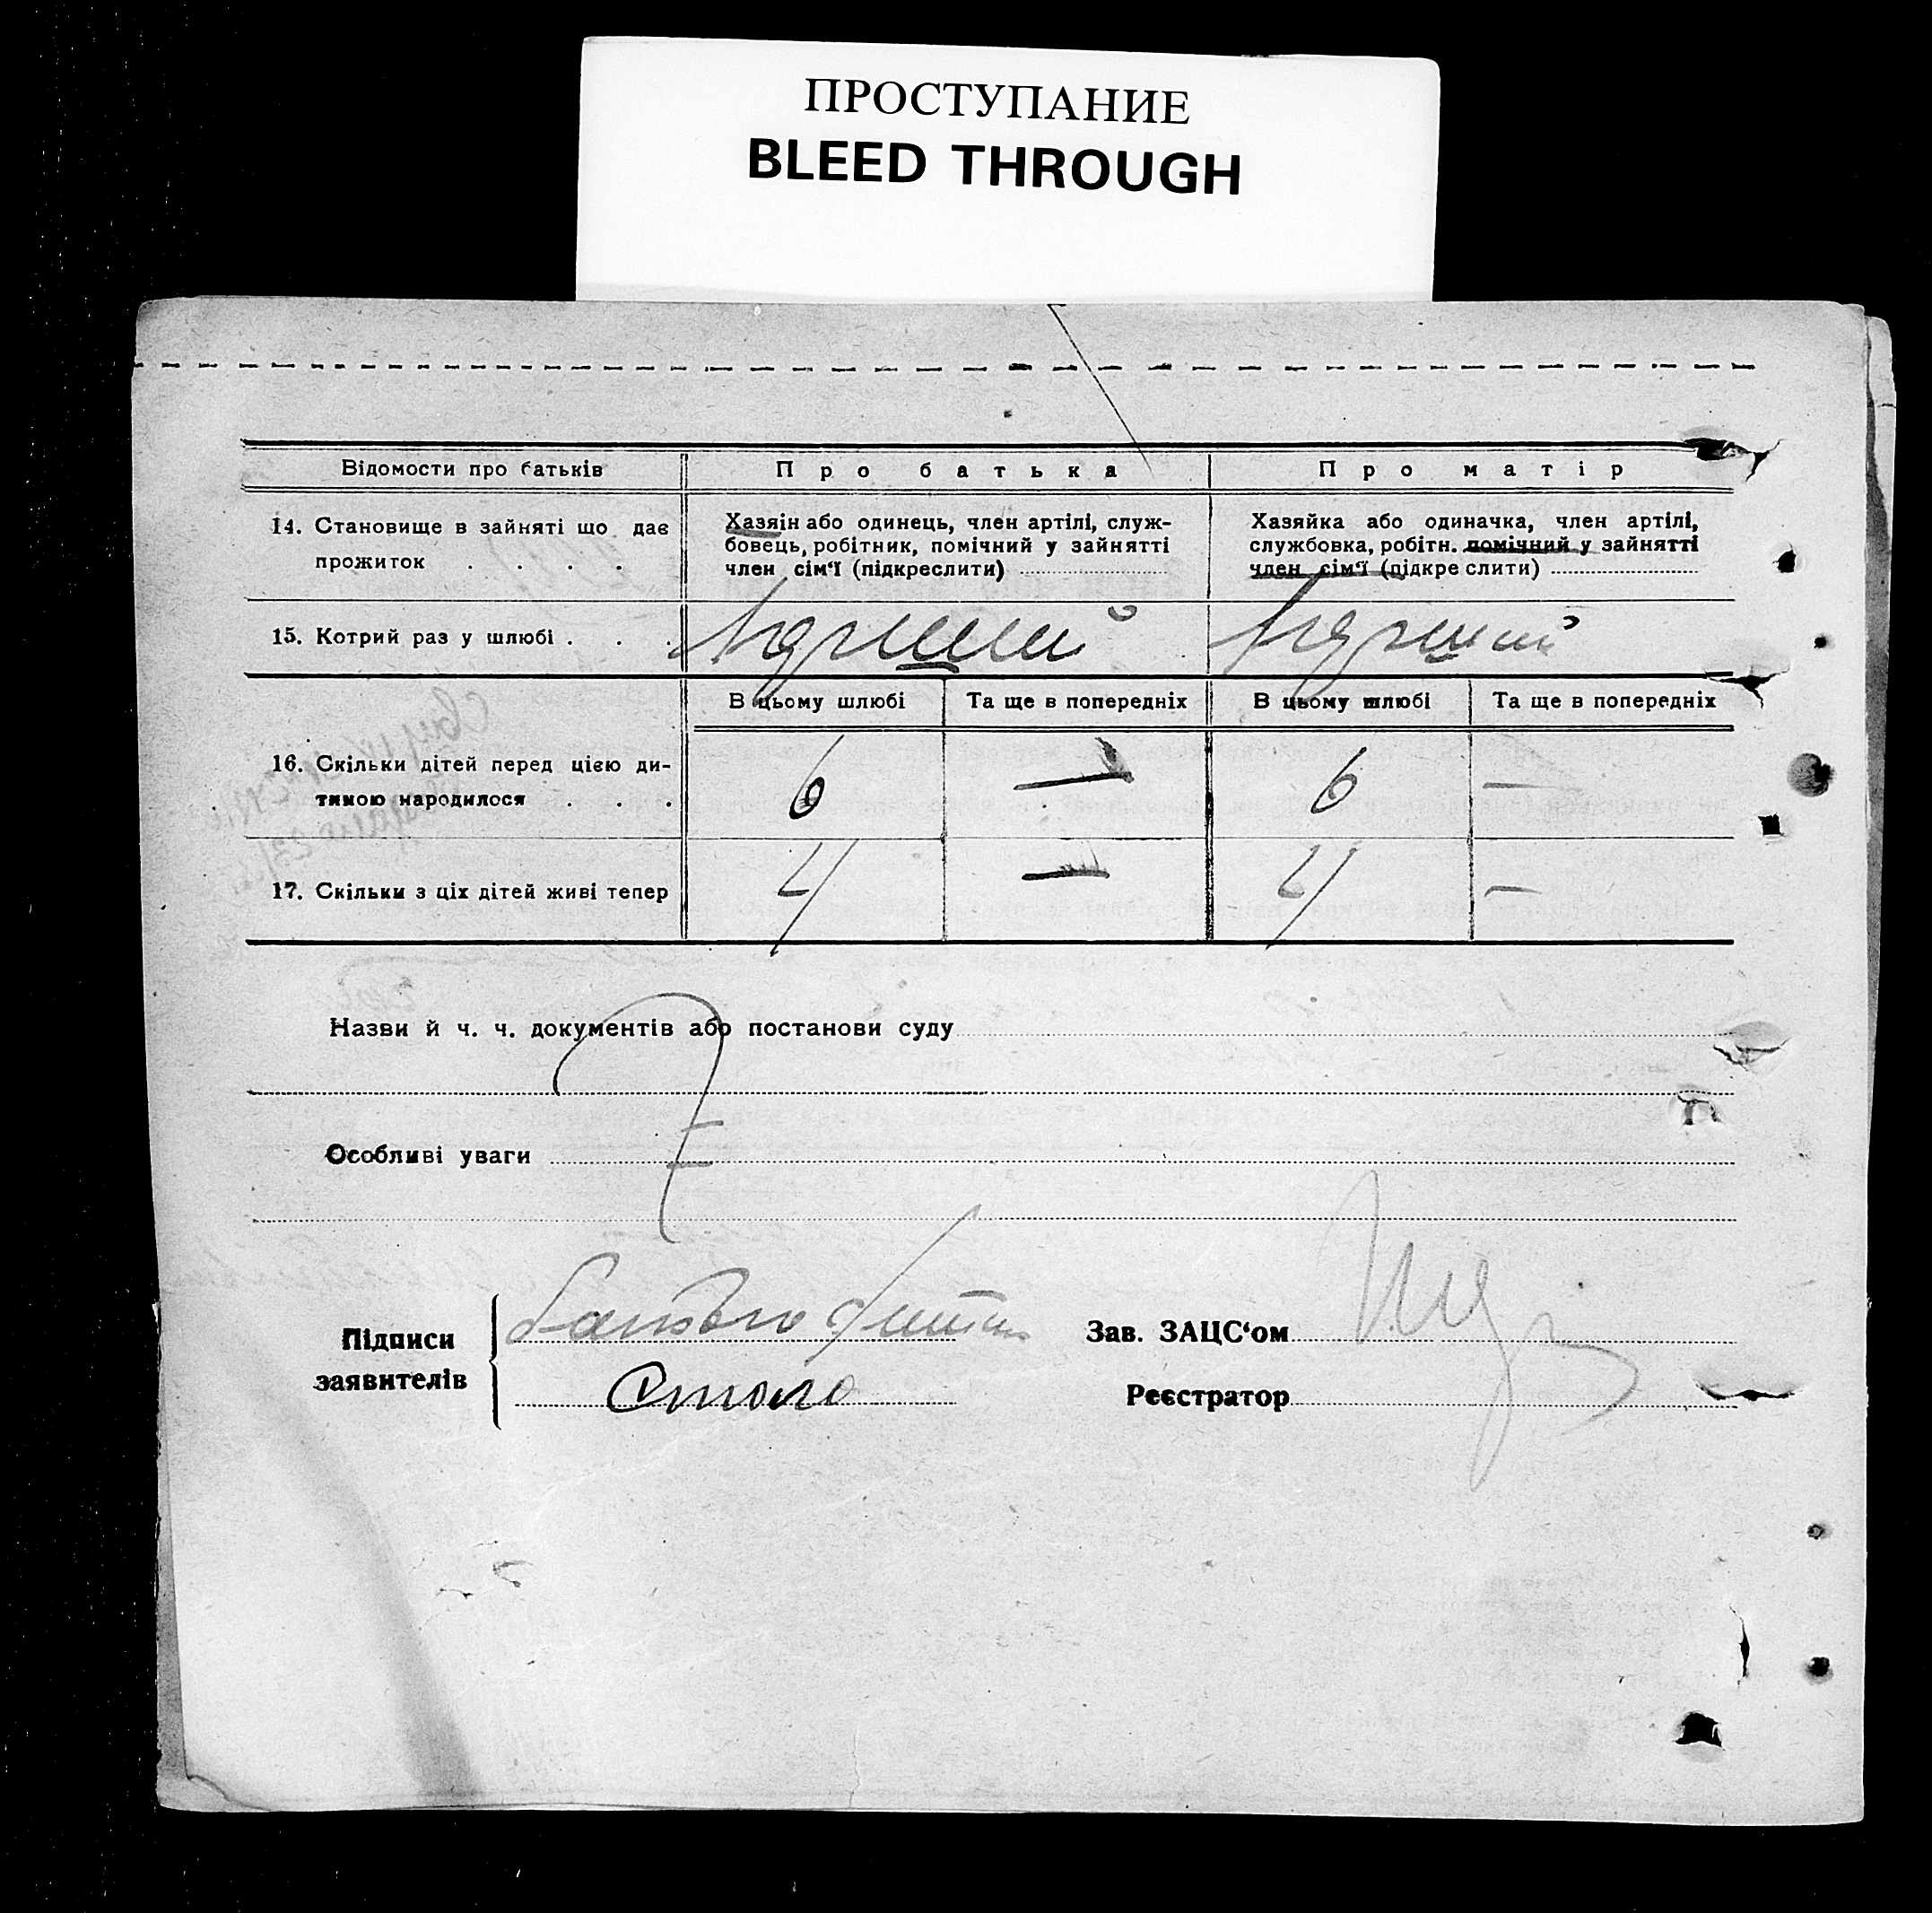 ПРОСТУПАНИЕ
BLEED THROUGH
Відомости про батьків
Про батька
Про матір
14. Становище в зайняті що дає
прожиток . . . .
Хазяін або одинець, член артілі, служ-
бовець, робітник, помічний у зайнятті
член сім‘ї (підкреслити)
Хазяйка або одиначка, член артілі,
службовка, робітн. помічний у зайнятті
член сім‘ї (підкреслити)
15. Котрий раз у шлюбі . . .
В цьому шлюбі
Та ще в попередніх
В цьому шлюбі
Та ще в попередніх
16. Скільки дітей перед цією ди-
тиною народилося . . .
6 — 6 —
17. Скільки з ціх дітей живі тепер
4 — 4 —
Назви й ч. ч. документів або постанови суду
Особливі уваги
Підписи
заявителів
Зав. ЗАЦС‘ом
Реєстратор